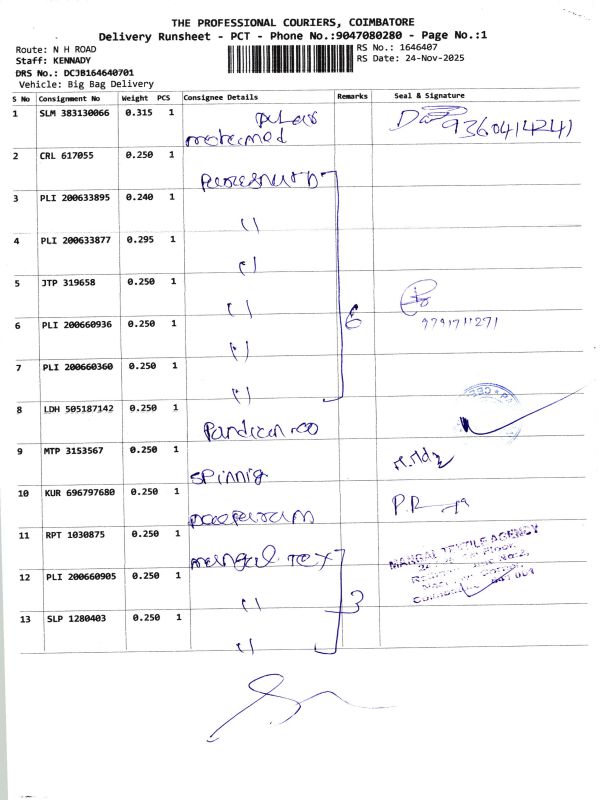 THE PROFESSIONAL COURIERS, COIMBATORE
Delivery Runsheet - PCT - Phone No.:9047080280 - Page No.:1
Route: N H ROAD
RS No.: 1646407
Staff: KENNADY
RS Date: 24-Nov-2025
DRS No.: DCJB164640701
Vehicle: Big Bag Delivery
S No Consignment No Weight PCS Consignee Details Remarks Seal & Signature
1 SLM 383130066 0.315 1 9360414241
2 CRL 617055 0.250 1
3 PLI 200633895 0.240 1 "
4 PLI 200633877 0.295 1 "
5 JTP 319658 0.250 1 "
6 PLI 200660936 0.250 1 " 6 9791711271
7 PLI 200660360 0.250 1 "
8 LDH 505187142 0.250 1 Pandian
9 MTP 3153567 0.250 1 Spinnig
10 KUR 696797680 0.250 1
11 RPT 1030875 0.250 1 mangal Tex MANGAL TEXTILE AGENCY
12 PLI 200660905 0.250 1 " 3
13 SLP 1280403 0.250 1 "